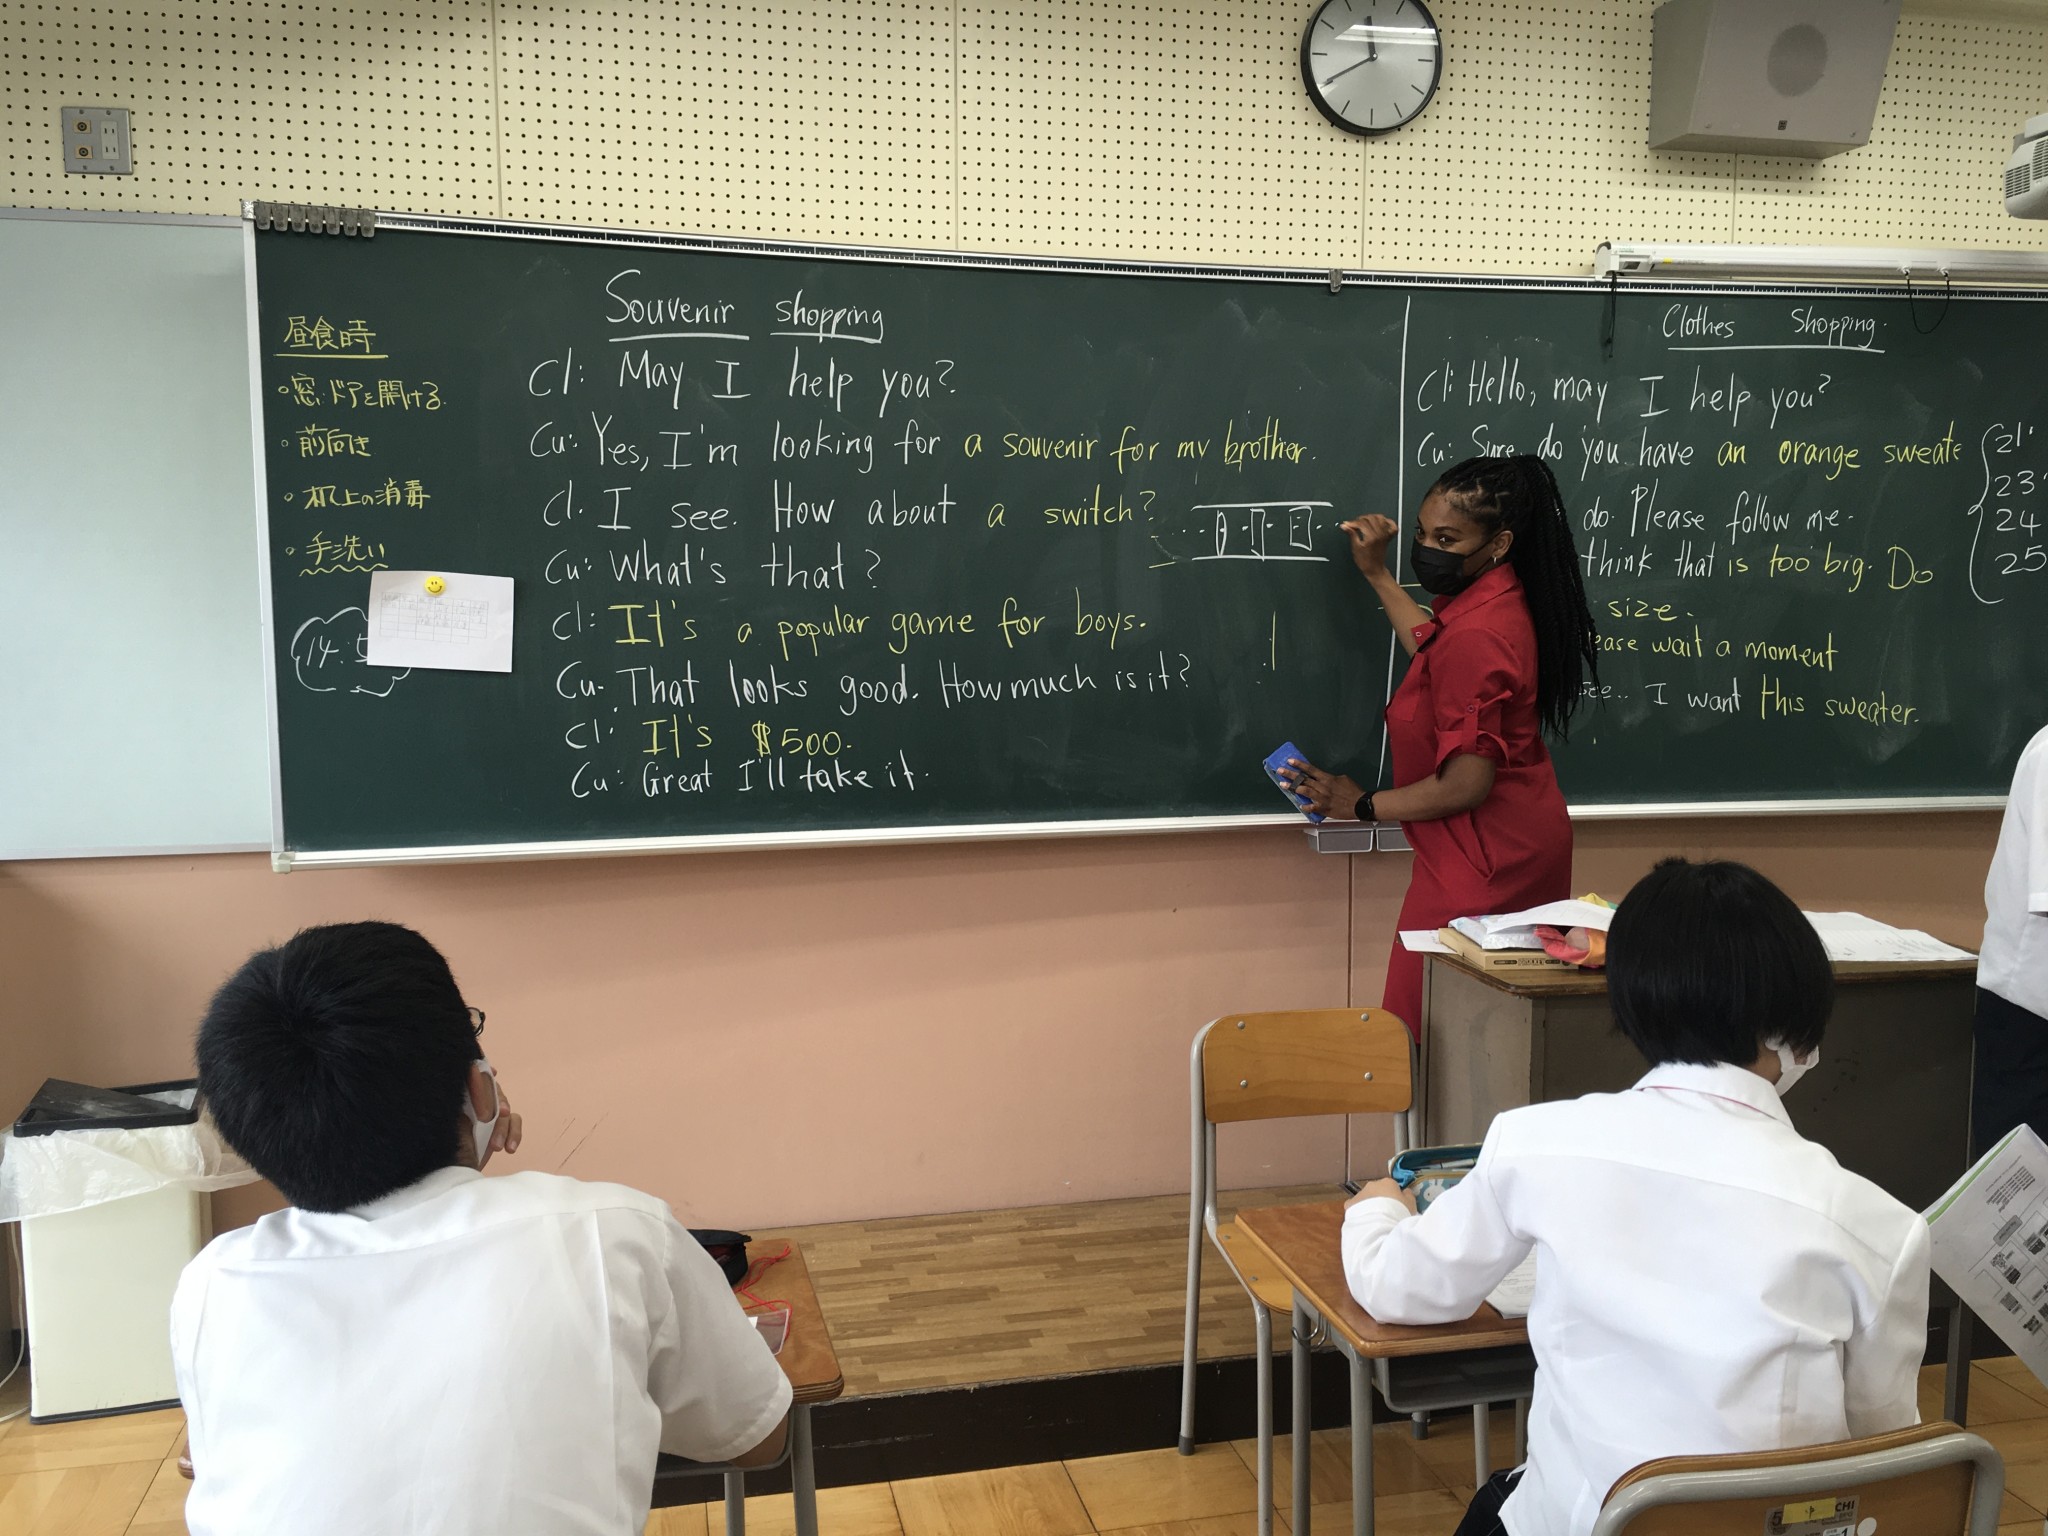 昼食時
・窓、ドアを開ける
・前向き
・机上の消毒
・手洗い
14:
Souvenir shopping
Cl: May I help you?
Cu: Yes, I'm looking for a souvenir for my brother.
Cl. I see. How about a switch?
Cu: What's that?
Cl: It's a popular game for boys.
Cu. That looks good. How much is it?
Cl: It's $500.
Cu: Great I'll take it.
Clothes Shopping.
Cl: Hello, may I help you?
Cu: Sure, do you have an orange sweate
do. Please follow me.
think that is too big. Do
size.
ease wait a moment
see.. I want this sweater.
21
23
24
25